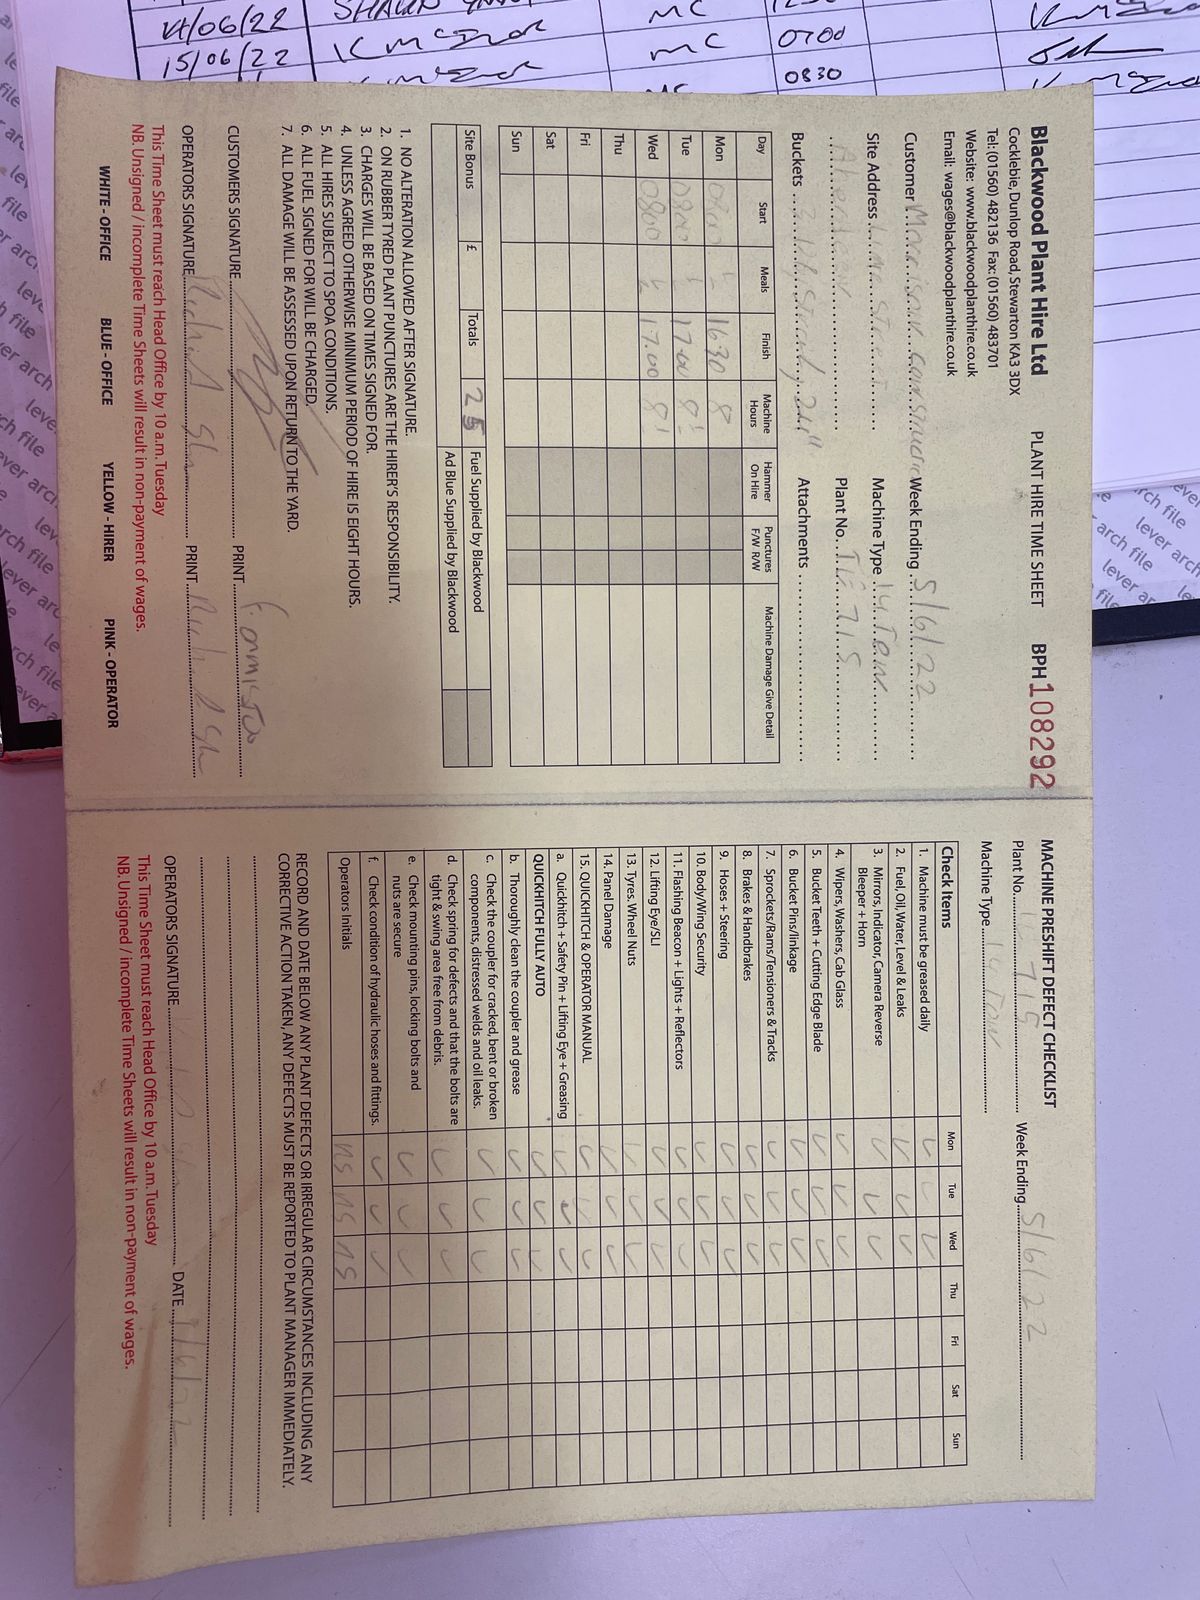 14/06/22
MC
15/06/22
MC
0700
0830
Blackwood Plant Hire Ltd PLANT HIRE TIME SHEET BPH 108292
Cocklebie, Dunlop Road, Stewarton KA3 3DX
Tel: (01560) 482136 Fax: (01560) 483701
Website: www.blackwoodplanthire.co.uk
Email: wages@blackwoodplanthire.co.uk
Customer Week Ending 5/6/22
Site Address Machine Type 14 Ton
Plant No. TE 715
Buckets Attachments
Day Start Meals Finish Machine Hours Hammer On Hire Punctures F/W R/W Machine Damage Give Detail
Mon 1630
Tue 0800 17.00
Wed 0800 17.00
Thu
Fri
Sat
Sun
Site Bonus £ Totals 25 Fuel Supplied by Blackwood
Ad Blue Supplied by Blackwood
1. NO ALTERATION ALLOWED AFTER SIGNATURE.
2. ON RUBBER TYRED PLANT PUNCTURES ARE THE HIRER'S RESPONSIBILITY.
3. CHARGES WILL BE BASED ON TIMES SIGNED FOR.
4. UNLESS AGREED OTHERWISE MINIMUM PERIOD OF HIRE IS EIGHT HOURS.
5. ALL HIRES SUBJECT TO SPOA CONDITIONS.
6. ALL FUEL SIGNED FOR WILL BE CHARGED.
7. ALL DAMAGE WILL BE ASSESSED UPON RETURN TO THE YARD.
CUSTOMERS SIGNATURE PRINT
OPERATORS SIGNATURE PRINT
This Time Sheet must reach Head Office by 10 a.m. Tuesday
NB. Unsigned / incomplete Time Sheets will result in non-payment of wages.
WHITE - OFFICE BLUE - OFFICE YELLOW - HIRER PINK - OPERATOR
MACHINE PRESHIFT DEFECT CHECKLIST
Plant No. 715 Week Ending 5/6/22
Machine Type
Check Items Mon Tue Wed Thu Fri Sat Sun
1. Machine must be greased daily
2. Fuel, Oil, Water, Level & Leaks
3. Mirrors, Indicator, Camera Reverse
Bleeper + Horn
4. Wipers, Washers, Cab Glass
5. Bucket Teeth + Cutting Edge Blade
6. Bucket Pins/linkage
7. Sprockets/Rams/Tensioners & Tracks
8. Brakes & Handbrakes
9. Hoses + Steering
10. Body/Wing Security
11. Flashing Beacon + Lights + Reflectors
12. Lifting Eye/SLI
13. Tyres. Wheel Nuts
14. Panel Damage
15. QUICKHITCH & OPERATOR MANUAL
a. Quickhitch + Safety Pin + Lifting Eye + Greasing
QUICKHITCH FULLY AUTO
b. Thoroughly clean the coupler and grease
c. Check the coupler for cracked, bent or broken
components, distressed welds and oil leaks.
d. Check spring for defects and that the bolts are
tight & swing area free from debris.
e. Check mounting pins, locking bolts and
nuts are secure
f. Check condition of hydraulic hoses and fittings.
Operators Initials
RECORD AND DATE BELOW ANY PLANT DEFECTS OR IRREGULAR CIRCUMSTANCES INCLUDING ANY
CORRECTIVE ACTION TAKEN, ANY DEFECTS MUST BE REPORTED TO PLANT MANAGER IMMEDIATELY.
OPERATORS SIGNATURE DATE
This Time Sheet must reach Head Office by 10 a.m. Tuesday
NB. Unsigned / incomplete Time Sheets will result in non-payment of wages.